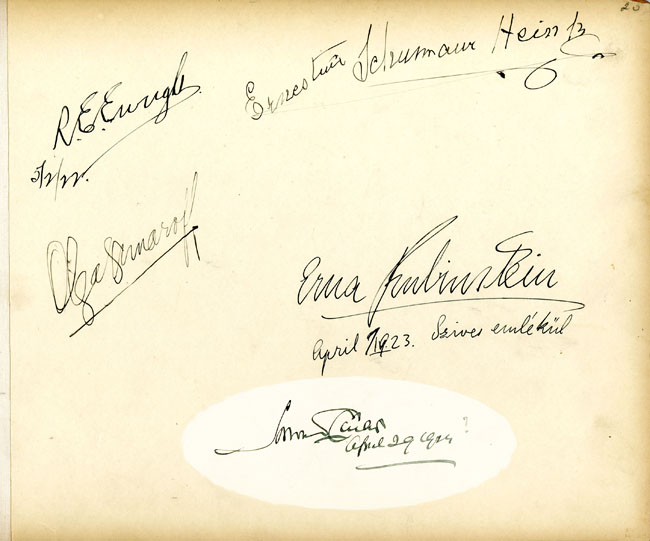 20
Ernestine Schumann Heink
R.E. Enright
5/2/22.
Olga Samaroff
Erna Rubinstein
April 7/1923. Szives emlékül
April 29 1924 ?